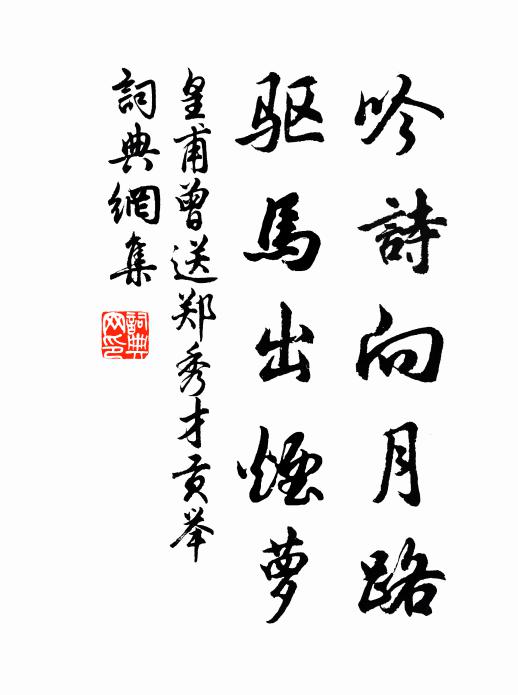 吟詩向月路
驱馬出煙萝
皇甫曾送郑秀才贡举
詞典網集
詞典
网印